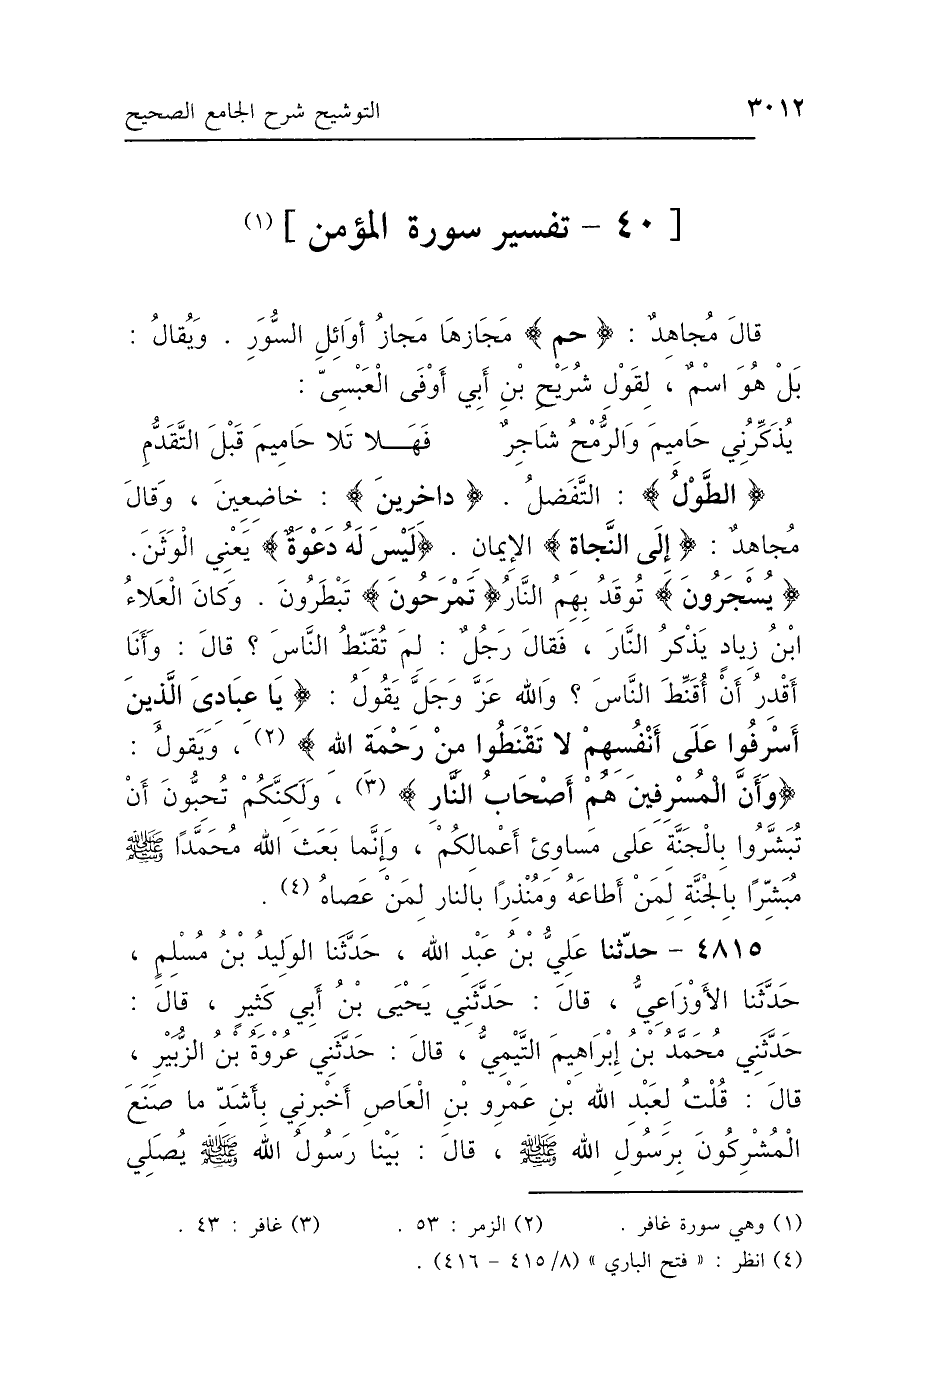 ٣٠١٢ التوشيح شرح الجامع الصحيح
[ ٤٠ - تفسير سورة المؤمن ] (١)
قالَ مُجاهِدٌ : ﴿ حم ﴾ مَجَازهَا مَجازُ أوَائِلِ السُّوَرِ . وَيُقالُ :
بَلْ هُوَ اسْمٌ ، لِقَوْلِ شُرَيْحِ بْنِ أَبي أَوْفَى الْعَبْسِيّ :
يُذَكِّرُنِي حَاميمَ وَالرُّمْحُ شَاجِرٌ فَهَـــلا تَلا حَاميمَ قَبْلَ التَّقَدُّمِ
﴿ الطَّوْلُ ﴾ : التَّفَضلُ . ﴿ داخرِينَ ﴾ : خاضعِينَ ، وَقالَ
مُجاهدٌ : ﴿ إلَى النَّجاة ﴾ الإيمانِ . ﴿لَيْسَ لَهُ دَعْوَةٌ ﴾ يَعْنِي الْوَثَنَ.
﴿ يُسْجَرُونَ ﴾ تُوقَدُ بِهِمُ النَّارُ﴿ تَمْرَحُونَ ﴾ تَبْطَرُونَ . وَكانَ الْعَلاءُ
ابْنُ زِيادٍ يَذْكرُ النَّارَ ، فَقالَ رَجُلٌ : لِمَ تُقَنِّطُ النَّاسَ ؟ قالَ : وَأَنَا
أَقْدرُ أَنْ أُقَنِّطَ النَّاسَ ؟ وَالله عَزَّ وَجَلَّ يَقُولُ : ﴿ يَا عِبادِىَ الَّذِينَ
أَسْرَفُوا عَلَى أَنْفُسِهِمْ لا تَقْنَطُوا مِنْ رَحْمَةِ الله ﴾ (٢) ، وَيَقولُ :
﴿وَأَنَّ الْمُسْرِفِينَ هُمْ أَصْحَابُ النَّارِ ﴾ (٣) ، وَلَكِنَّكُمْ تُحِبُّونَ أَنْ
تُبَشَّرُوا بِالْجَنَّةِ عَلَى مَساوِئِ أَعْمالِكُمْ ، وَإِنَّما بَعَثَ الله مُحَمَّدًا ﷺ
مُبَشِّرًا بِالْجَنَّةِ لِمَنْ أَطاعَهُ وَمُنْذِرًا بالنار لِمَنْ عَصاهُ (٤) .
٤٨١٥ - حدّثنا عَلِيُّ بْنُ عَبْدِ الله ، حَدَّثَنا الوَلِيدُ بْنُ مُسْلِمٍ ،
حَدَّثَنا الأَوْزَاعِيُّ ، قالَ : حَدَّثَنِي يَحْيَى بْنُ أَبي كَثِيرٍ ، قالَ :
حَدَّثَنِي مُحَمَّدُ بْنُ إِبْرَاهِيمَ التَّيْمِيُّ ، قالَ : حَدَّثَنِي عُرْوَةُ بْنُ الزُّبَيْرِ ،
قالَ : قُلْتُ لِعَبْدِ الله بْنِ عَمْرِو بْنِ الْعَاصِ أَخْبِرنِي بِأَشَدِّ ما صَنَعَ
الْمُشْرِكُونَ بِرَسُولِ الله ﷺ ، قَالَ : بَيْنا رَسُولُ الله ﷺ يُصَلِي
(١) وهي سورة غافر . (٢) الزمر : ٥٣ . (٣) غافر : ٤٣ .
(٤) انظر : « فتح الباري » (٨/ ٤١٥ - ٤١٦) .